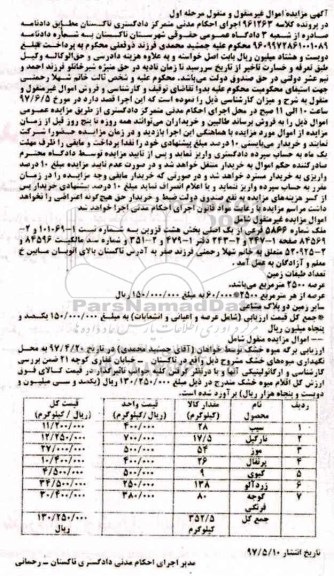 آگهی مزایده اموال غیرمنقول و منقول مرحله اول
در پرونده کلاسه ۹۶۱۲۶۳ اجرای احکام مدنی متمرکز دادگستری تاکستان مطابق دادنامه
صادره از شعبه ۳ دادگاه عمومی حقوقی شهرستان تاکستان به شماره دادنامه
۹۶۰۹۹۷۲۸۶۱۰۰۱۰۸۹ محکوم علیه جمشید محمدی فرزند ذوفعلی محکوم به پرداخت مبلغ
دویست و هشتاد میلیون ریال بابت اصل خواسته و به علاوه هزینه دادرسی و حق الوکاله وکیل
طبق تعرفه و خسارت تاخیر از تاریخ سررسید تا زمان تادیه در حق منیژه شیرخانلو فرزند احمد و
نیم عشر دولتی در حق صندوق دولت می‌باشد. محکوم علیه و شخص ثالث خانم شهلا رحمتی
جهت استیفای محکومیت محکوم علیه بدوا تقاضای توقیف و کارشناسی و فروش اموال غیرمنقول و
منقول به شرح و میزان کارشناسی ذیل را نموده است که این اجرا قصد دارد در مورخ ۹۷/۶/۵
ساعت ۱۰ الی ۱۱ صبح در محل اجرای احکام مدنی متمرکز دادگستری از طریق مزایده عمومی
اموال ذیل را به فروش برساند طالبین و خریداران می‌توانند همه روزه تا پنج روز قبل از زمان
مزایده از اموال مورد مزایده با هماهنگی این اجرا بازدید و در زمان مزایده حضورا شرکت
نمایند و خریدار می‌بایستی ۱۰ درصد مبلغ پیشنهادی خود را نقدا پرداخت و مابقی را ظرف مهلت
یک ماه به حساب سپرده دادگستری واریز نماید و پس از تایید مزایده توسط دادگاه محترم
صادرکننده حکم اموال به خریدار منتقل خواهد شد و در صورت عدم تایید مزایده مبلغ ۱۰ درصد
واریزی به خریدار مسترد خواهد شد و در صورتی که خریدار مابقی وجه مزایده را در زمان
مقرر به حساب سپرده واریز ننماید و یا اعلام انصراف نماید مبلغ ۱۰ درصد پیشنهادی خریدار پس
از کسر هزینه‌های مزایده به نفع صندوق دولت ضبط و خریدار حق هیچگونه اعتراضی را نخواهد
داشت مراسم مزایده با رعایت مواد قانون اجرای احکام مدنی اجرا خواهد شد.
اموال مزایده غیرمنقول شامل
ملک شماره ۵۸۶۶ فرعی از یک اصلی بخش هشت قزوین به شماره ثبت ۱۰۱۰۶۹-۱ و
۸۴۵۶۹ صفحه ۱-۳۴۷ و ۲-۲۴۳ دفتر ۱-۴۷۹ و ۲-۳۵۱ و شماره سند مالکیت ۸۴۵۹۶ و
۲-۵۲۰۹۲۵ متعلق به خانم شهلا رحمتی فرزند صفر به آدرس تاکستان بالای اتوبان سایبن خ
معلم و آزادگان به عمل آمد.
تعداد طبقات زمین
عرصه ۲۵۰۰ مترمربع می‌باشد.
عرصه از هر مترمربع ۶۰/۰۰۰×۲۵۰۰ به مبلغ ۱۵۰/۰۰۰/۰۰۰ ریال
سایر زمین دو پلاک مشاعی
※جمع کل قیمت ارزیابی (شامل عرصه و اعیانی و انشعابات) به مبلغ ۱۵۰/۰۰۰/۰۰۰ یکصد و
پنجاه میلیون ریال
----- اموال مزایده منقول شامل
ارزیابی کره میوه خشک توسط خواهان (آقای جمشید محمدی) در تاریخ ۹۷/۴/۲۰ به محل
نگهداری میوه‌های خشک مشروح ذیل واقع در تاکستان - خیابان غفاری کوچه ۲۱ ضمن بررسی
کارشناسی و ارگانولپتیکی آنها و با درنظر گرفتن کلیه جوانب تاثیرگذار در قیمت کالای فوق
ارزش کل اقلام میوه خشک مندرج در ذیل مبلغ ۱۳۰/۲۵۰/۰۰۰ ریال (یکصد و سی میلیون و
دویست و پنجاه هزار ریال) برآورد شده است.
ردیف نام محصول مقدار کالا (کیلوگرم) قیمت واحد (ریال/کیلوگرم) قیمت کل (ریال / کیلوگرم)
۱ سیب ۲۸ ۴۰۰/۰۰۰ ۱۱/۲۰۰/۰۰۰
۲ نارگیل ۱۷/۵ ۷۰۰/۰۰۰ ۱۲/۲۵۰/۰۰۰
۳ موز ۵۴ ۵۰۰/۰۰۰ ۲۷/۰۰۰/۰۰۰
۴ پرتقال ۲۶ ۴۰۰/۰۰۰ ۱۰/۴۰۰/۰۰۰
۵ کیوی ۹ ۵۰۰/۰۰۰ ۴/۵۰۰/۰۰۰
۶ زردآلو ۱۳۸ ۲۵۰/۰۰۰ ۳۴/۵۰۰/۰۰۰
۷ گوجه فرنگی ۸۰ ۳۸۰/۰۰۰ ۳۰/۴۰۰/۰۰۰
جمع کل ۳۵۲/۵ کیلوگرم ۱۳۰/۲۵۰/۰۰۰ ریال
تاریخ انتشار ۹۷/۵/۱۰
مدیر اجرای احکام مدنی دادگستری تاکستان - رحمانی